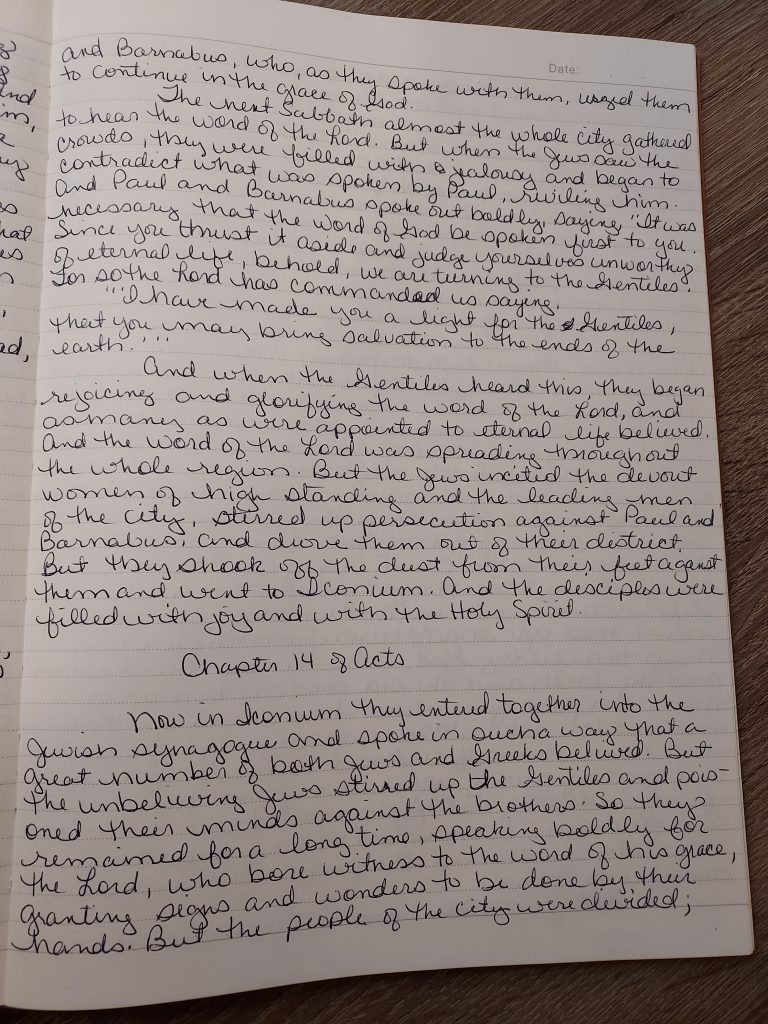 Date:
and Barnabus, who, as they spoke with them, urged them
to continue in the grace of God.
The next Sabbath almost the whole city gathered
to hear the word of the Lord. But when the Jews saw the
crowds, they were filled with jealousy and began to
contradict what was spoken by Paul, reviling him.
And Paul and Barnabus spoke out boldly, saying, "It was
necessary that the word of God be spoken first to you.
Since you thrust it aside and judge yourselves unworthy
of eternal life, behold, we are turning to the Gentiles.
For so the Lord has commanded us saying,
"'I have made you a light for the Gentiles,
that you may bring salvation to the ends of the
earth.'"
And when the Gentiles heard this, they began
rejoicing and glorifying the word of the Lord, and
as many as were appointed to eternal life believed.
And the word of the Lord was spreading throughout
the whole region. But the Jews incited the devout
women of high standing and the leading men
of the city, stirred up persecution against Paul and
Barnabus, and drove them out of their district.
But they shook off the dust from their feet against
them and went to Iconium. And the desciples were
filled with joy and with the Holy Spirit.
Chapter 14 of Acts
Now in Iconium they entered together into the
Jewish synagogue and spoke in such a way that a
great number of both Jews and Greeks belived. But
the unbelieving Jews stirred up the Gentiles and pois-
oned their minds against the brothers. So they
remained for a long time, speaking boldly for
the Lord, who bore witness to the word of his grace,
granting signs and wonders to be done by their
hands. But the people of the city were divided;